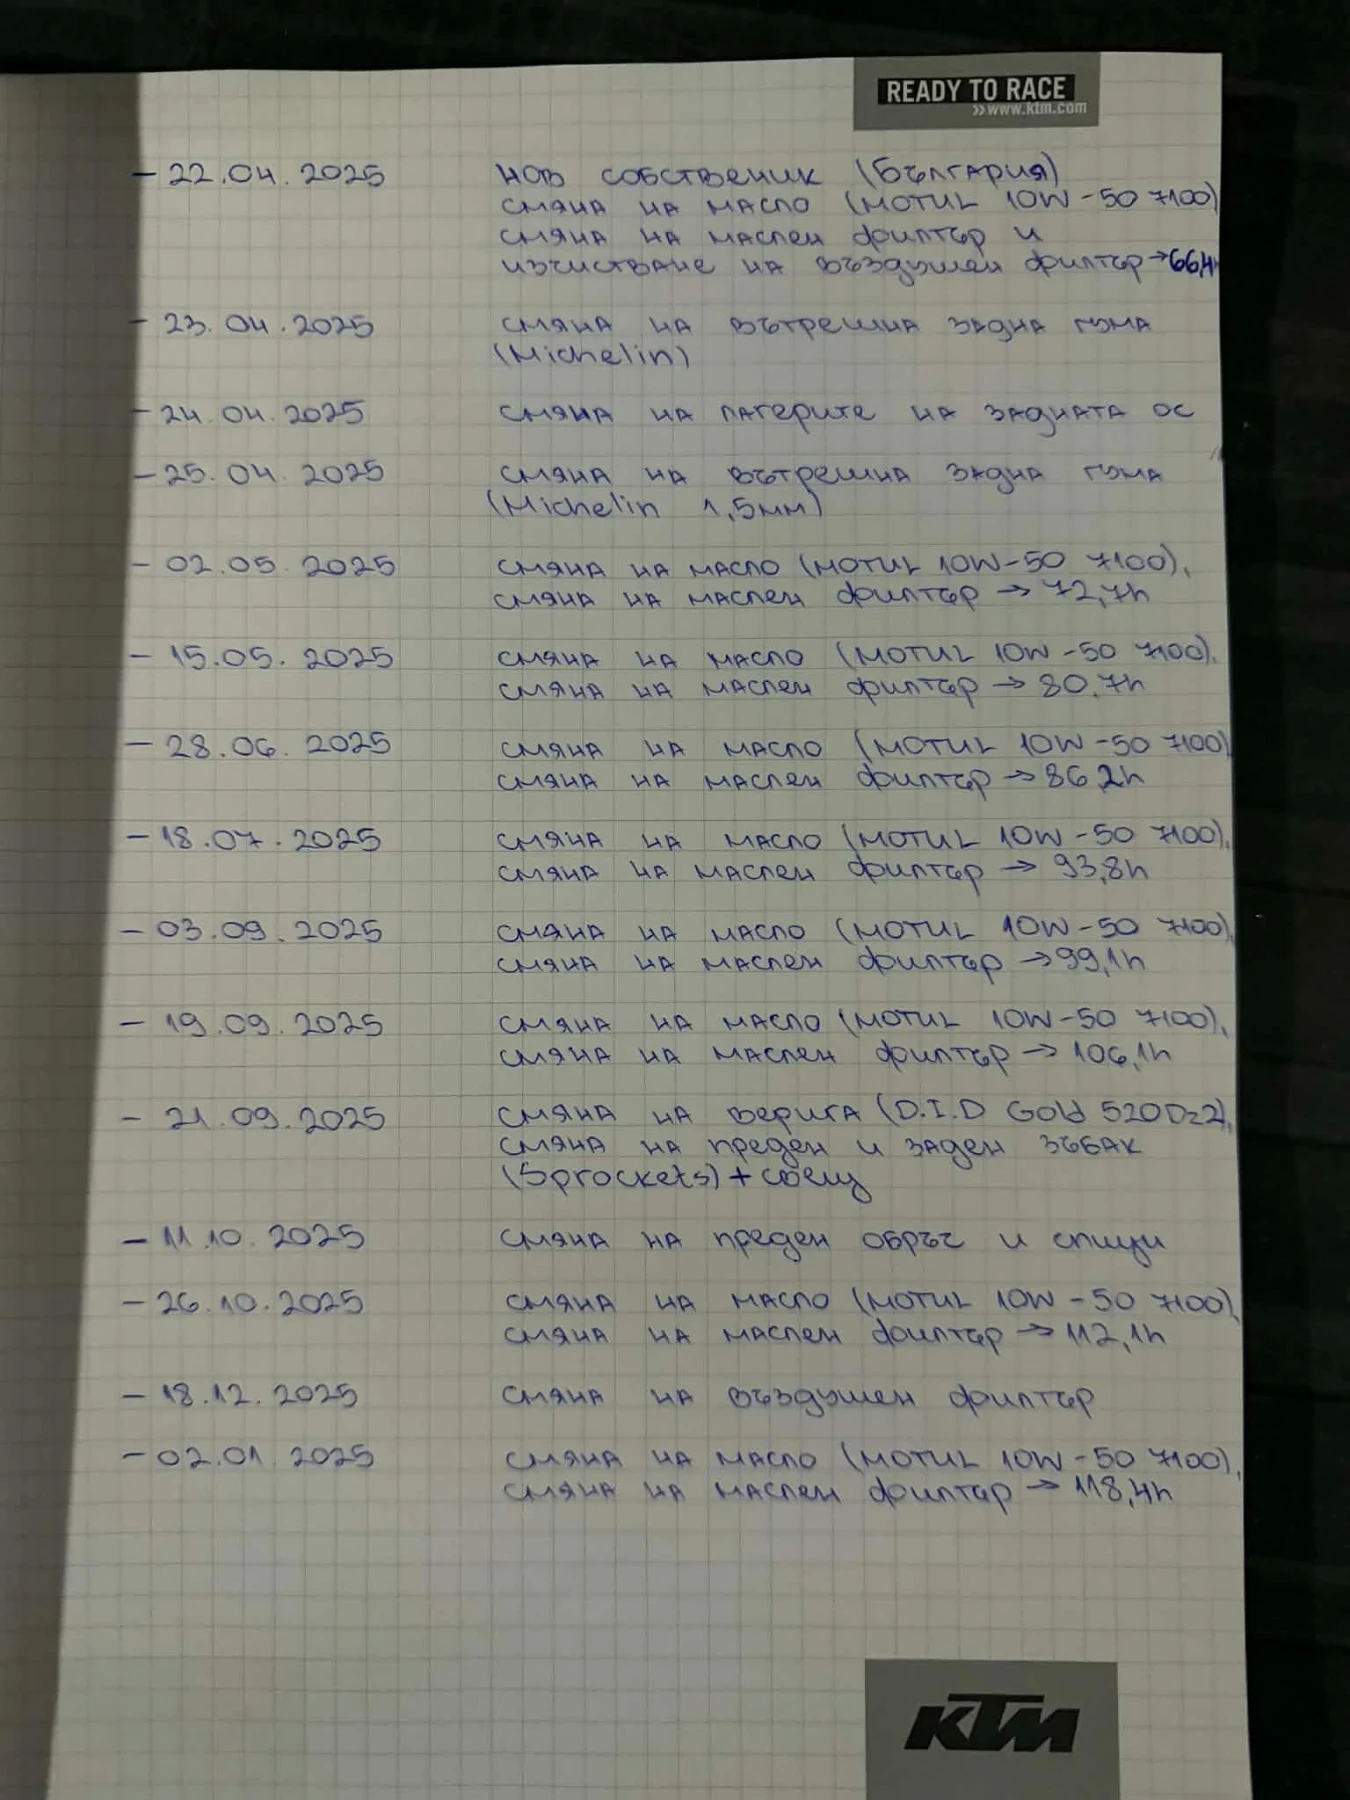 READY TO RACE
>>www.ktm.com
- 22.04.2025 НОВ СОБСТВЕНИК (БЪЛГАРИЯ)
СМЯНА НА МАСЛО (MOTUL 10W-50 7100)
СМЯНА НА МАСЛЕН ФИЛТЪР И
ИЗЧИСТВАНЕ НА ВЪЗДУШЕН ФИЛТЪР → 66,4h
- 23.04.2025 СМЯНА НА ВЪТРЕШНА ЗАДНА ГУМА
(Michelin)
- 24.04.2025 СМЯНА НА ЛАГЕРИТЕ НА ЗАДНАТА ОС
- 25.04.2025 СМЯНА НА ВЪТРЕШНА ЗАДНА ГУМА
(Michelin 1,5мм)
- 02.05.2025 СМЯНА НА МАСЛО (MOTUL 10W-50 7100),
СМЯНА НА МАСЛЕН ФИЛТЪР → 72,7h
- 15.05.2025 СМЯНА НА МАСЛО (MOTUL 10W-50 7100),
СМЯНА НА МАСЛЕН ФИЛТЪР → 80,7h
- 28.06.2025 СМЯНА НА МАСЛО (MOTUL 10W-50 7100)
СМЯНА НА МАСЛЕН ФИЛТЪР → 86,2h
- 18.07.2025 СМЯНА НА МАСЛО (MOTUL 10W-50 7100),
СМЯНА НА МАСЛЕН ФИЛТЪР → 93,8h
- 03.09.2025 СМЯНА НА МАСЛО (MOTUL 10W-50 7100),
СМЯНА НА МАСЛЕН ФИЛТЪР → 99,1h
- 19.09.2025 СМЯНА НА МАСЛО (MOTUL 10W-50 7100),
СМЯНА НА МАСЛЕН ФИЛТЪР → 106,1h
- 21.09.2025 СМЯНА НА ВЕРИГА (D.I.D Gold 520Dz2),
СМЯНА НА ПРЕДЕН И ЗАДЕН ЗЪБАК
(Sprockets) + СВЕЩ
- 11.10.2025 СМЯНА НА ПРЕДЕН ОБРЪЧ И СПИЦИ
- 26.10.2025 СМЯНА НА МАСЛО (MOTUL 10W-50 7100),
СМЯНА НА МАСЛЕН ФИЛТЪР → 112,1h
- 18.12.2025 СМЯНА НА ВЪЗДУШЕН ФИЛТЪР
- 02.01.2025 СМЯНА НА МАСЛО (MOTUL 10W-50 7100),
СМЯНА НА МАСЛЕН ФИЛТЪР → 118,4h
KTM